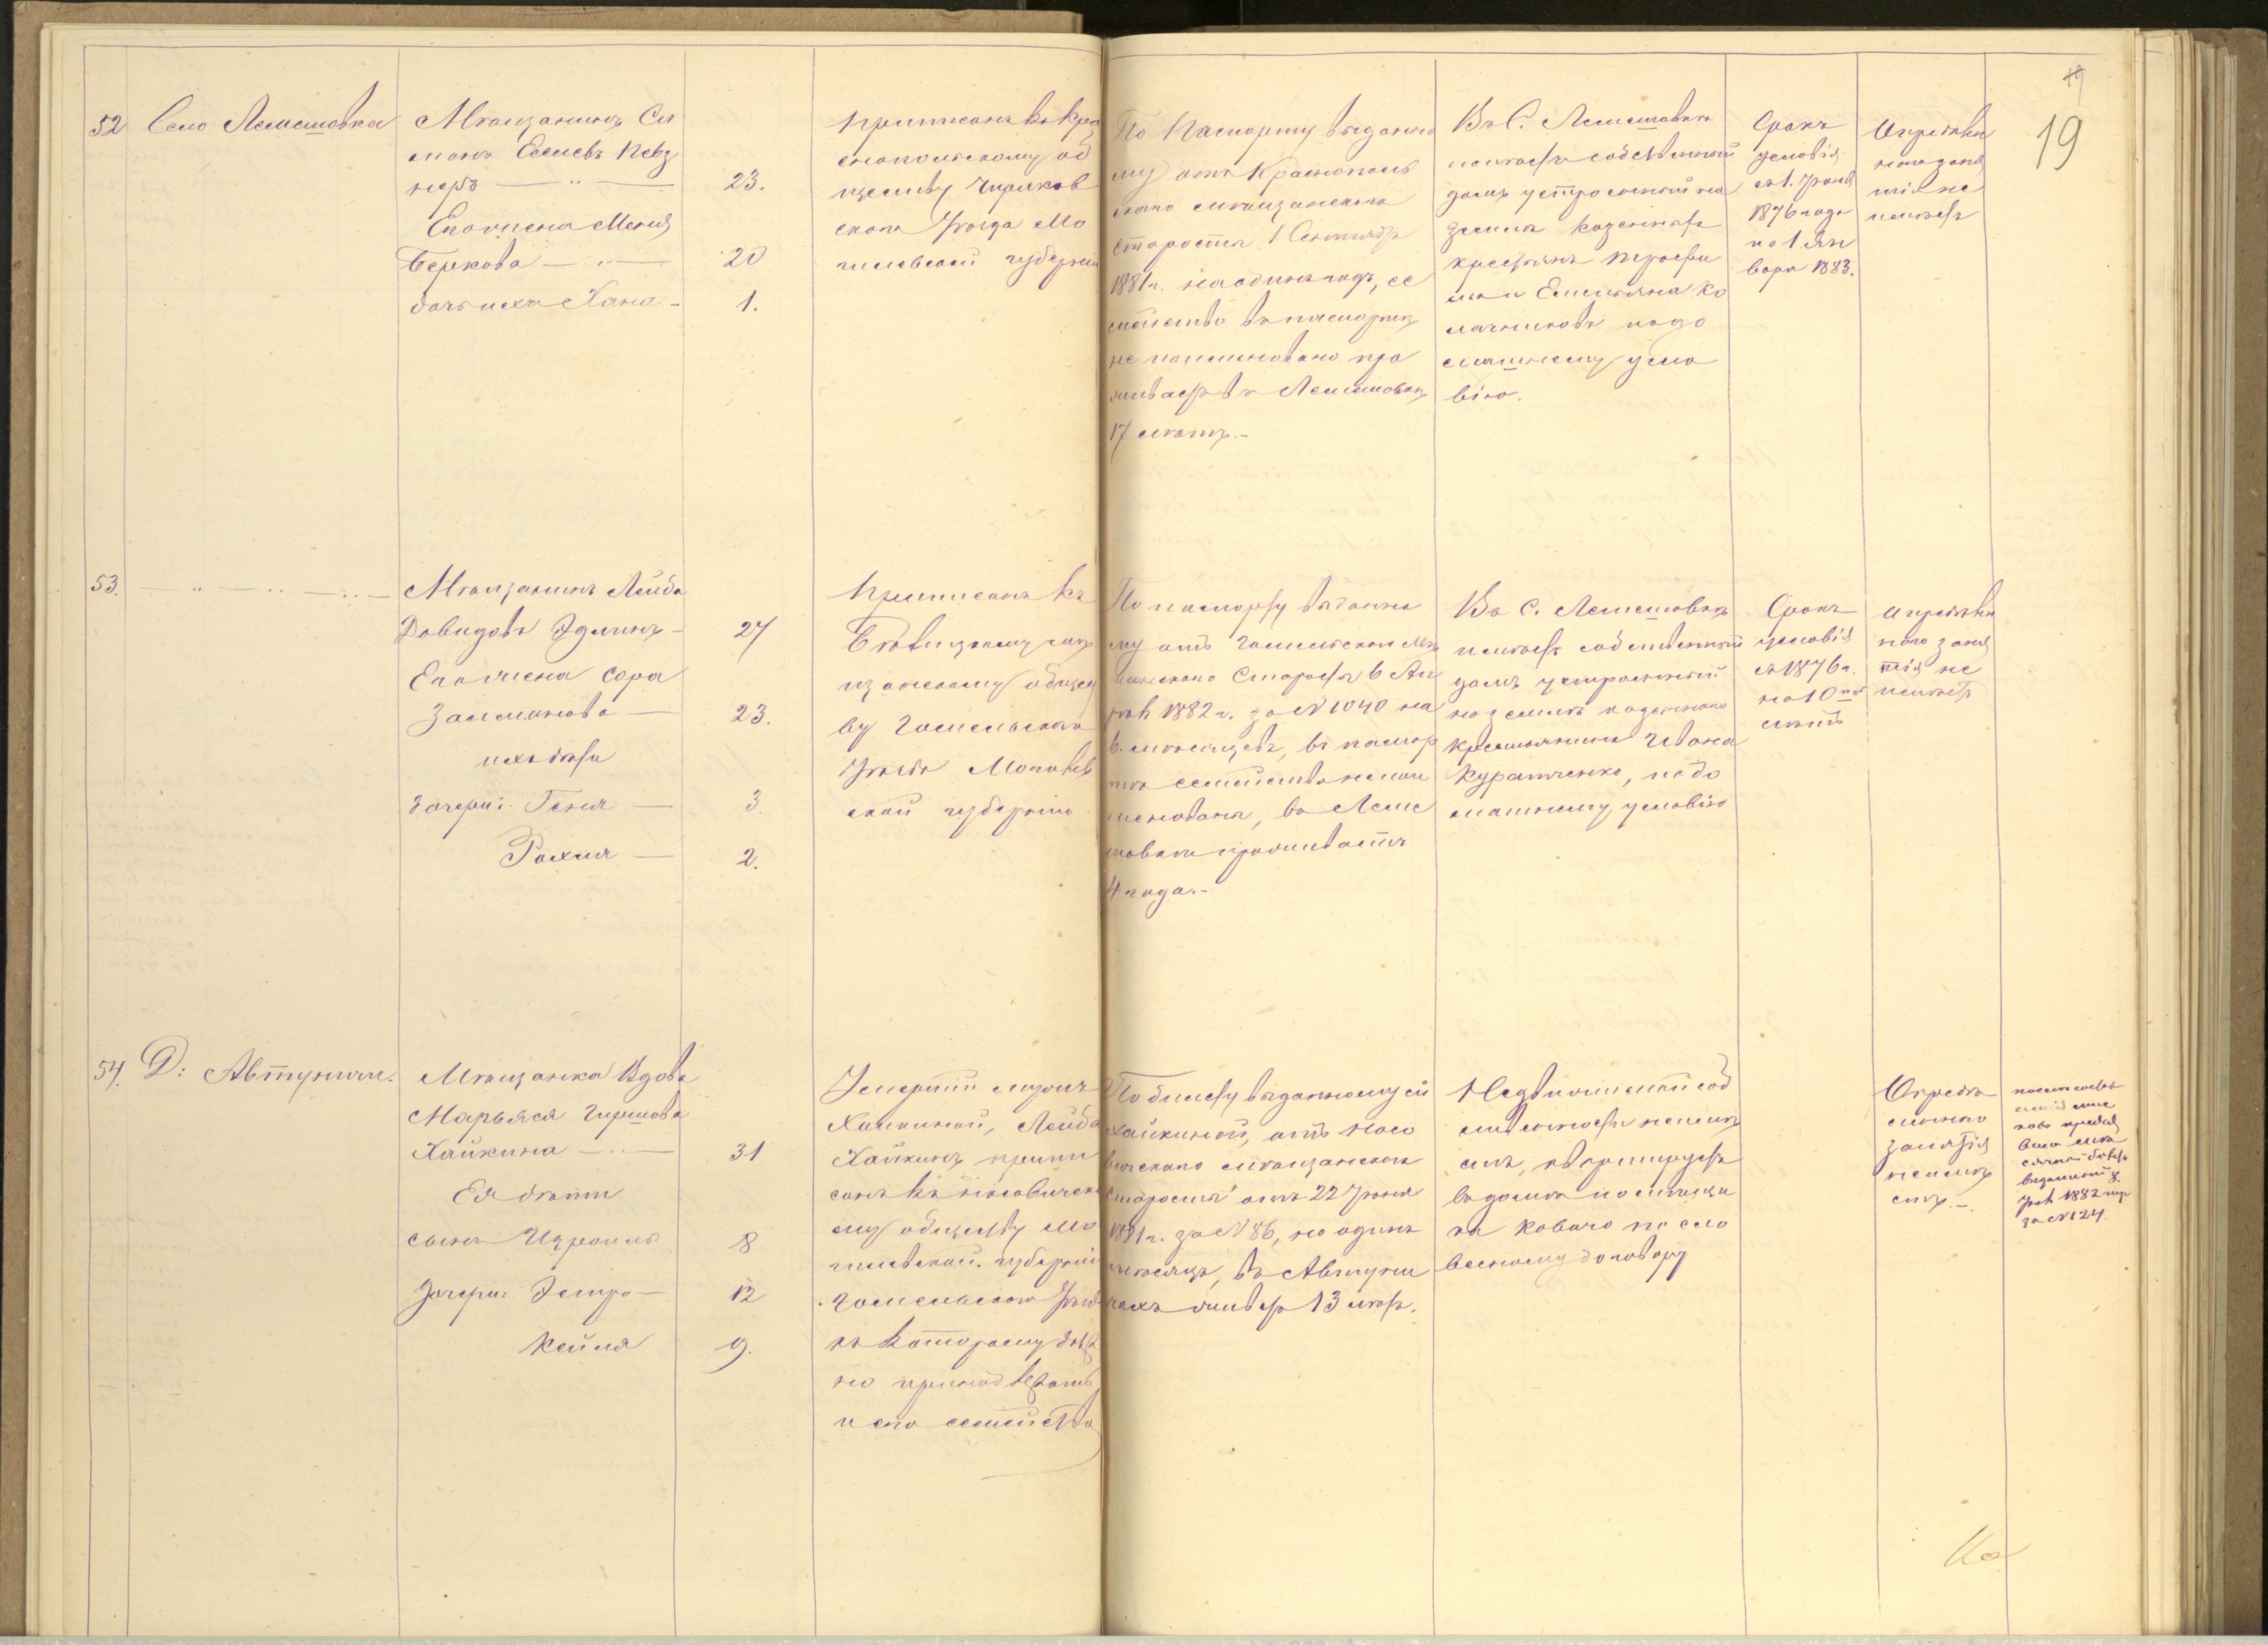 19
52
Село Лемешовка
Мѣщанинъ Си
монъ Еселевъ Певз
неръ — " —
23.
Его жена Меня
Беркова — " —
20
дочь ихъ Хана -
1.
Приписанъ къ Крас
нопольскому об
ществу Чериков
скаго Уѣзда Мо
гилевской губерніи
По Паспорту выданно
му отъ Краснополь
скаго мѣщанскаго
старосты 1 Сентября
1881 г. на одинъ годъ, се
мейство въ паспортѣ
не поименовано про
живаетъ въ Лемешовкѣ
17 лѣтъ.-
Въ С. Лемешовкѣ
имѣетъ собственный
домъ устроенный на
землѣ казенныхъ
крестьянъ Трофи
ма и Емельяна Ко
лачниковъ по до
машнему усло
вію.
Срокъ
условія
съ 1. Іюня
1876 года
по 1 Ян
варя 1883.
Опредѣлен
наго заня
тія не
имѣетъ
53.
— " — " — " —
Мѣщанинъ Лейба
Давидовъ Эдлинъ -
27
Его жена Сора
Залманова —
23.
ихъ дѣти
дочери: Геня —
3.
Рахля —
2.
Приписанъ къ
Бѣлицкому мѣ
щанскому общест
ву Гомельскаго
Уѣзда Могилев
ской губерніи
По паспорту выданно
му отъ Гомельскаго Мѣ
щанскаго Старосты 6 Ап
рѣля 1882 г. за № 1040 на
6. мѣсяцевъ, въ паспор
тѣ семейство не пои
меновано, въ Леме
шовкѣ проживаетъ
4 года.-
Въ С. Лемешовкѣ
имѣетъ собственный
домъ устроенный
на землѣ казеннаго
крестьянина Ивана
Курапченко, по до
машнему условію
Срокъ
условія
съ 1876 г.
на 10ть
лѣтъ
Опредѣлен
наго заня
тія не
имѣетъ
54.
Д: Автуничи.
Мѣщанка Вдова
Марьяся Гиршова
Хайкина — " —
31
Ея дѣти
сынъ Израиль
8
дочери: Эстра —
12
Кейля
9.
Умершій мужъ
Хайкиной, Лейба
Хайкинъ припи
санъ къ Носовичско
му обществу Мо
гилевской губерніи
Гомельскаго Уѣзда
къ которому должно
принадлежать
и его семейство
По билету выданному ей
Хайкиной, отъ Носо
вичскаго мѣщанскаго
старосты отъ 22 Іюня
1881 г. за № 86, на одинъ
мѣсяцъ, въ Автуни
чахъ живетъ 13 лѣтъ.
Недвижимой соб
ственности не имѣ
етъ, квартируетъ
въ домѣ помѣщи
ка Коваго по сло
весному договору
Опредѣ
леннаго
занятія
не имѣ
етъ.-